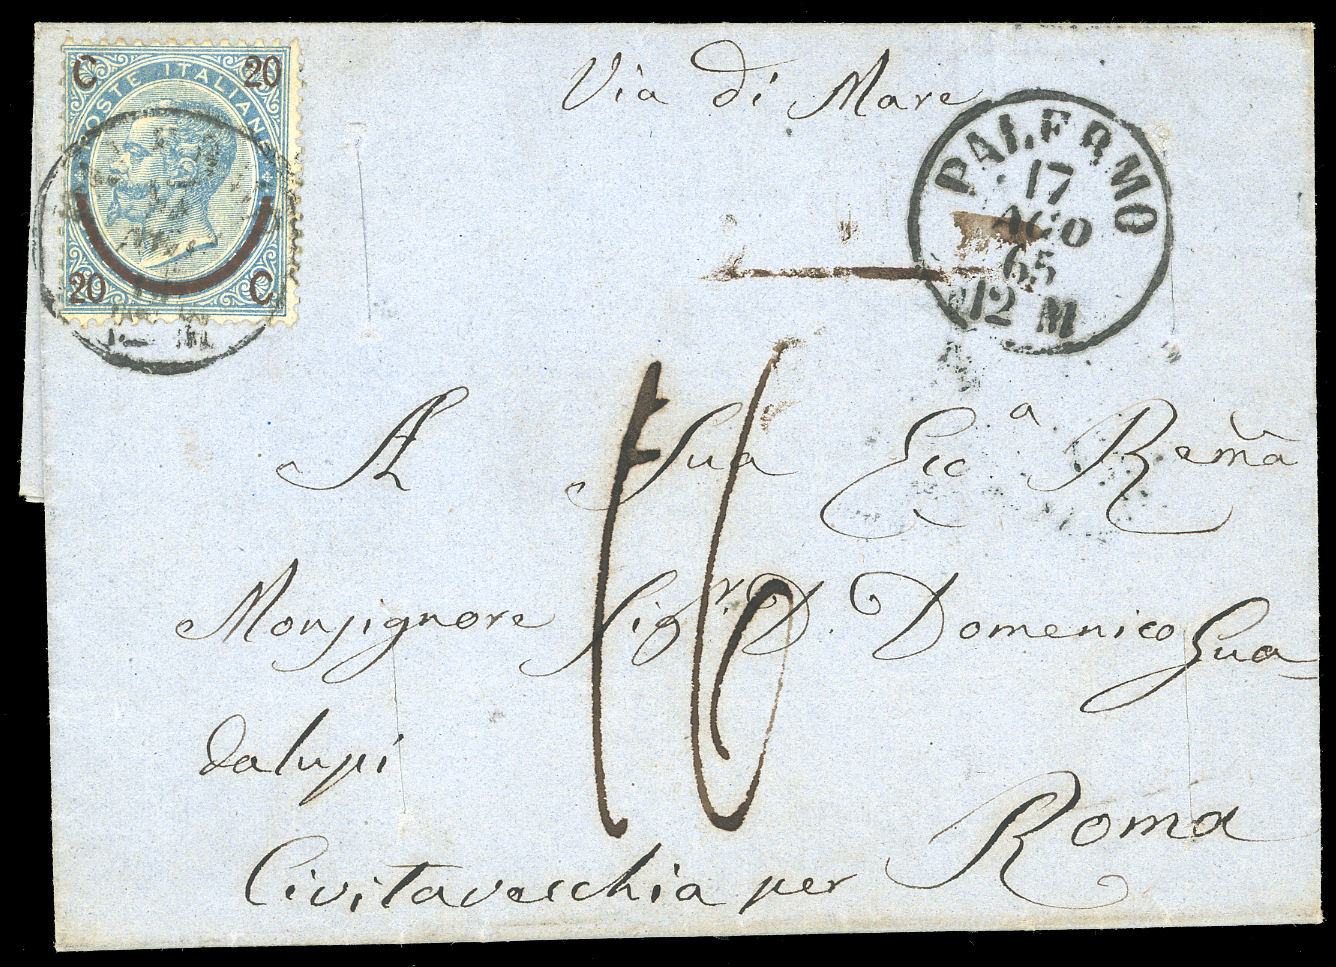 C 20
POSTE ITALIANE
20 C
Via di Mare
PALERMO
17
AGO
65
12 M
A Sua Ecc.a Rema
Monsignore Sigr. D. Domenico Gua
dalupi
16
Civitavecchia per Roma